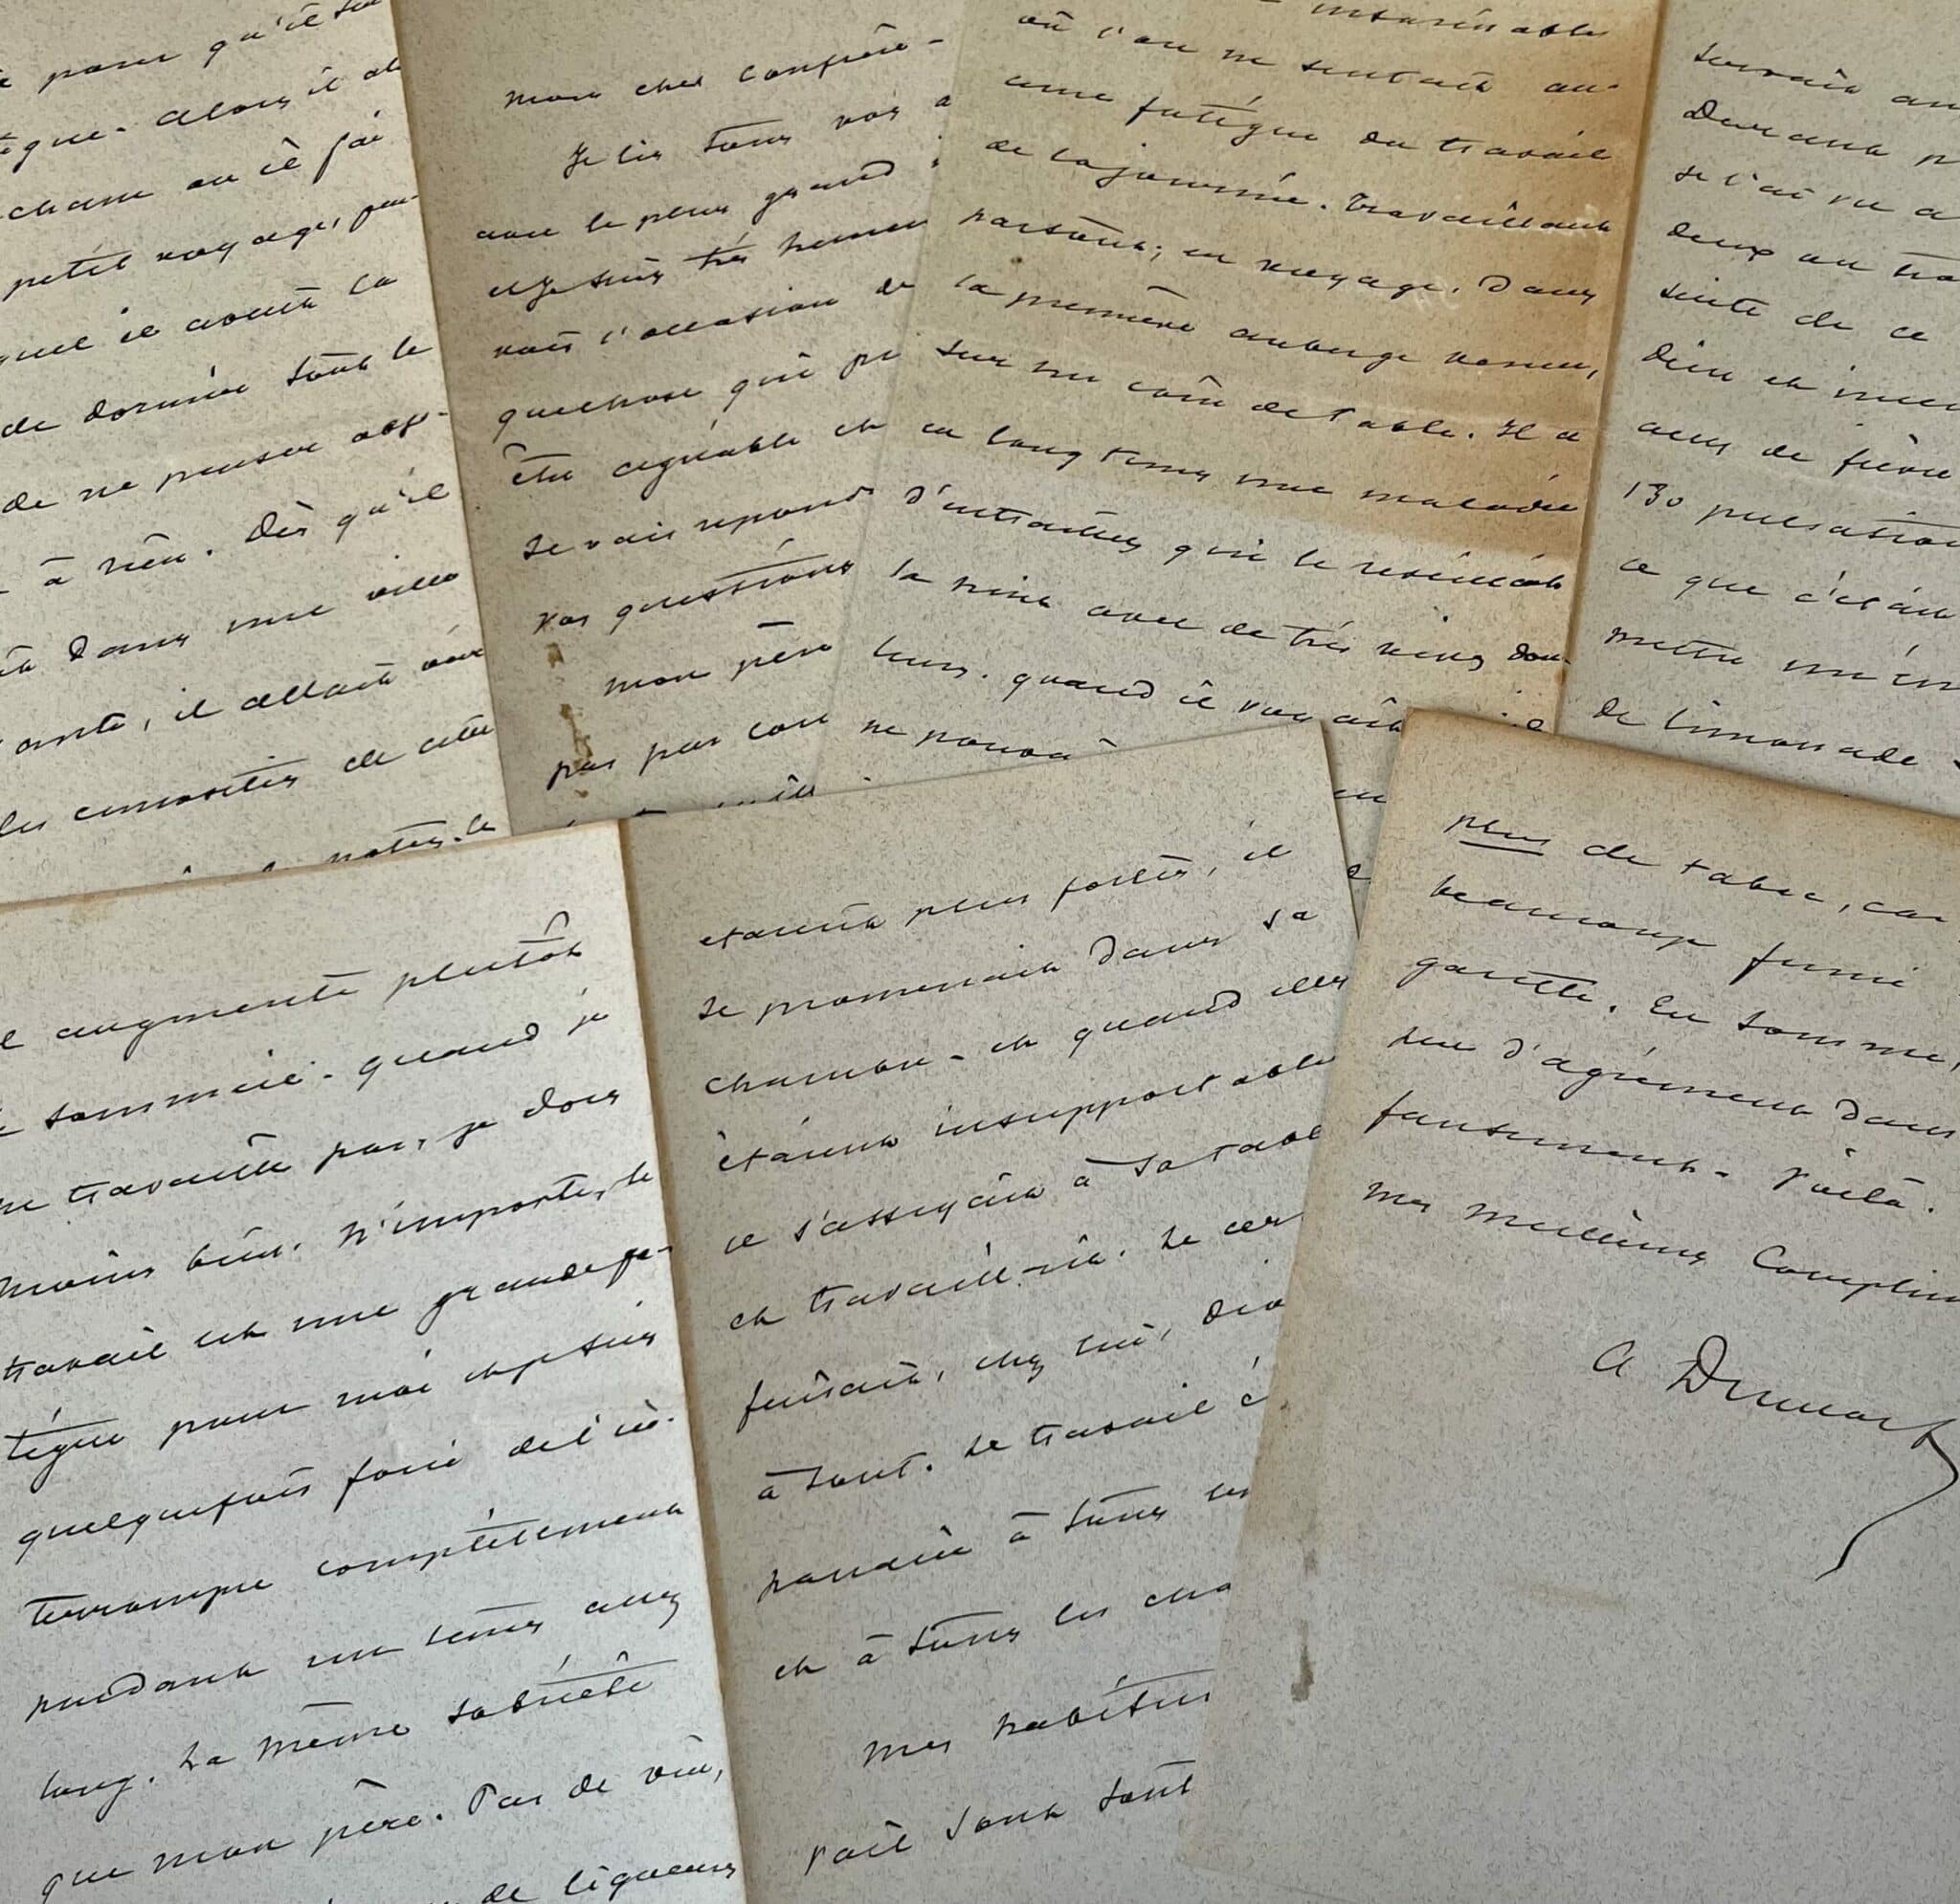 pour qu'il
Alors il
chasse où il
petit voyage, pen-
quel il avait la
de dormir tout le
de ne penser abso-
à rien. Dès qu'il
dans une ville
il allait voir
les curiosités de cette
notes. le
Mon cher confrère -
Je lis tous vos a
avec le plus grand
et je suis très heureux
l'occasion de
quelchose qui
être agréable et
Je vais repond
vos questions
Mon père
pas par
intarissables
où l'on ne sentait au-
cune fatigue du travail
de la journée. Travaillant
partout; en voyage. Dans
la première auberge venue,
sur un coin de table. Il a
eu longtemps une maladie
d'entrailles qui le réveillait
la nuit avec de très vives dou-
leurs. quand il voyait
ne pouvait
servait
Devant
Je l'ai vu
deux ou tro
suite de ce
accès de fièvre
130 pulsation
ce que c'était
mettre
de limonade
augmente plutôt
sommeil. quand je
ne travaille pas, je dors
moins bien. N'importe, le
travail est une grande fa-
tigue pour moi et je suis
quelquefois forcé de l'in-
terrompre complètement
pendant un temps assez
long. La même sobriété
que mon père. Pas de vin,
de liqueurs
étaient plus fortes, il
se promenait dans sa
chambre - et quand elles
étaient insupportable
il s'asseyait à sa tabl
et travaillait. Le cer
faisait, chez lui, div
à tout. Le travail é
à tous les
et à tous les cha
Mes habitu
vail sont tout
plus de tabac, car
beaucoup fumé
garette. En somme,
peu d'agrément dans
Voilà.
Mes meilleurs Complim
A Dumas f